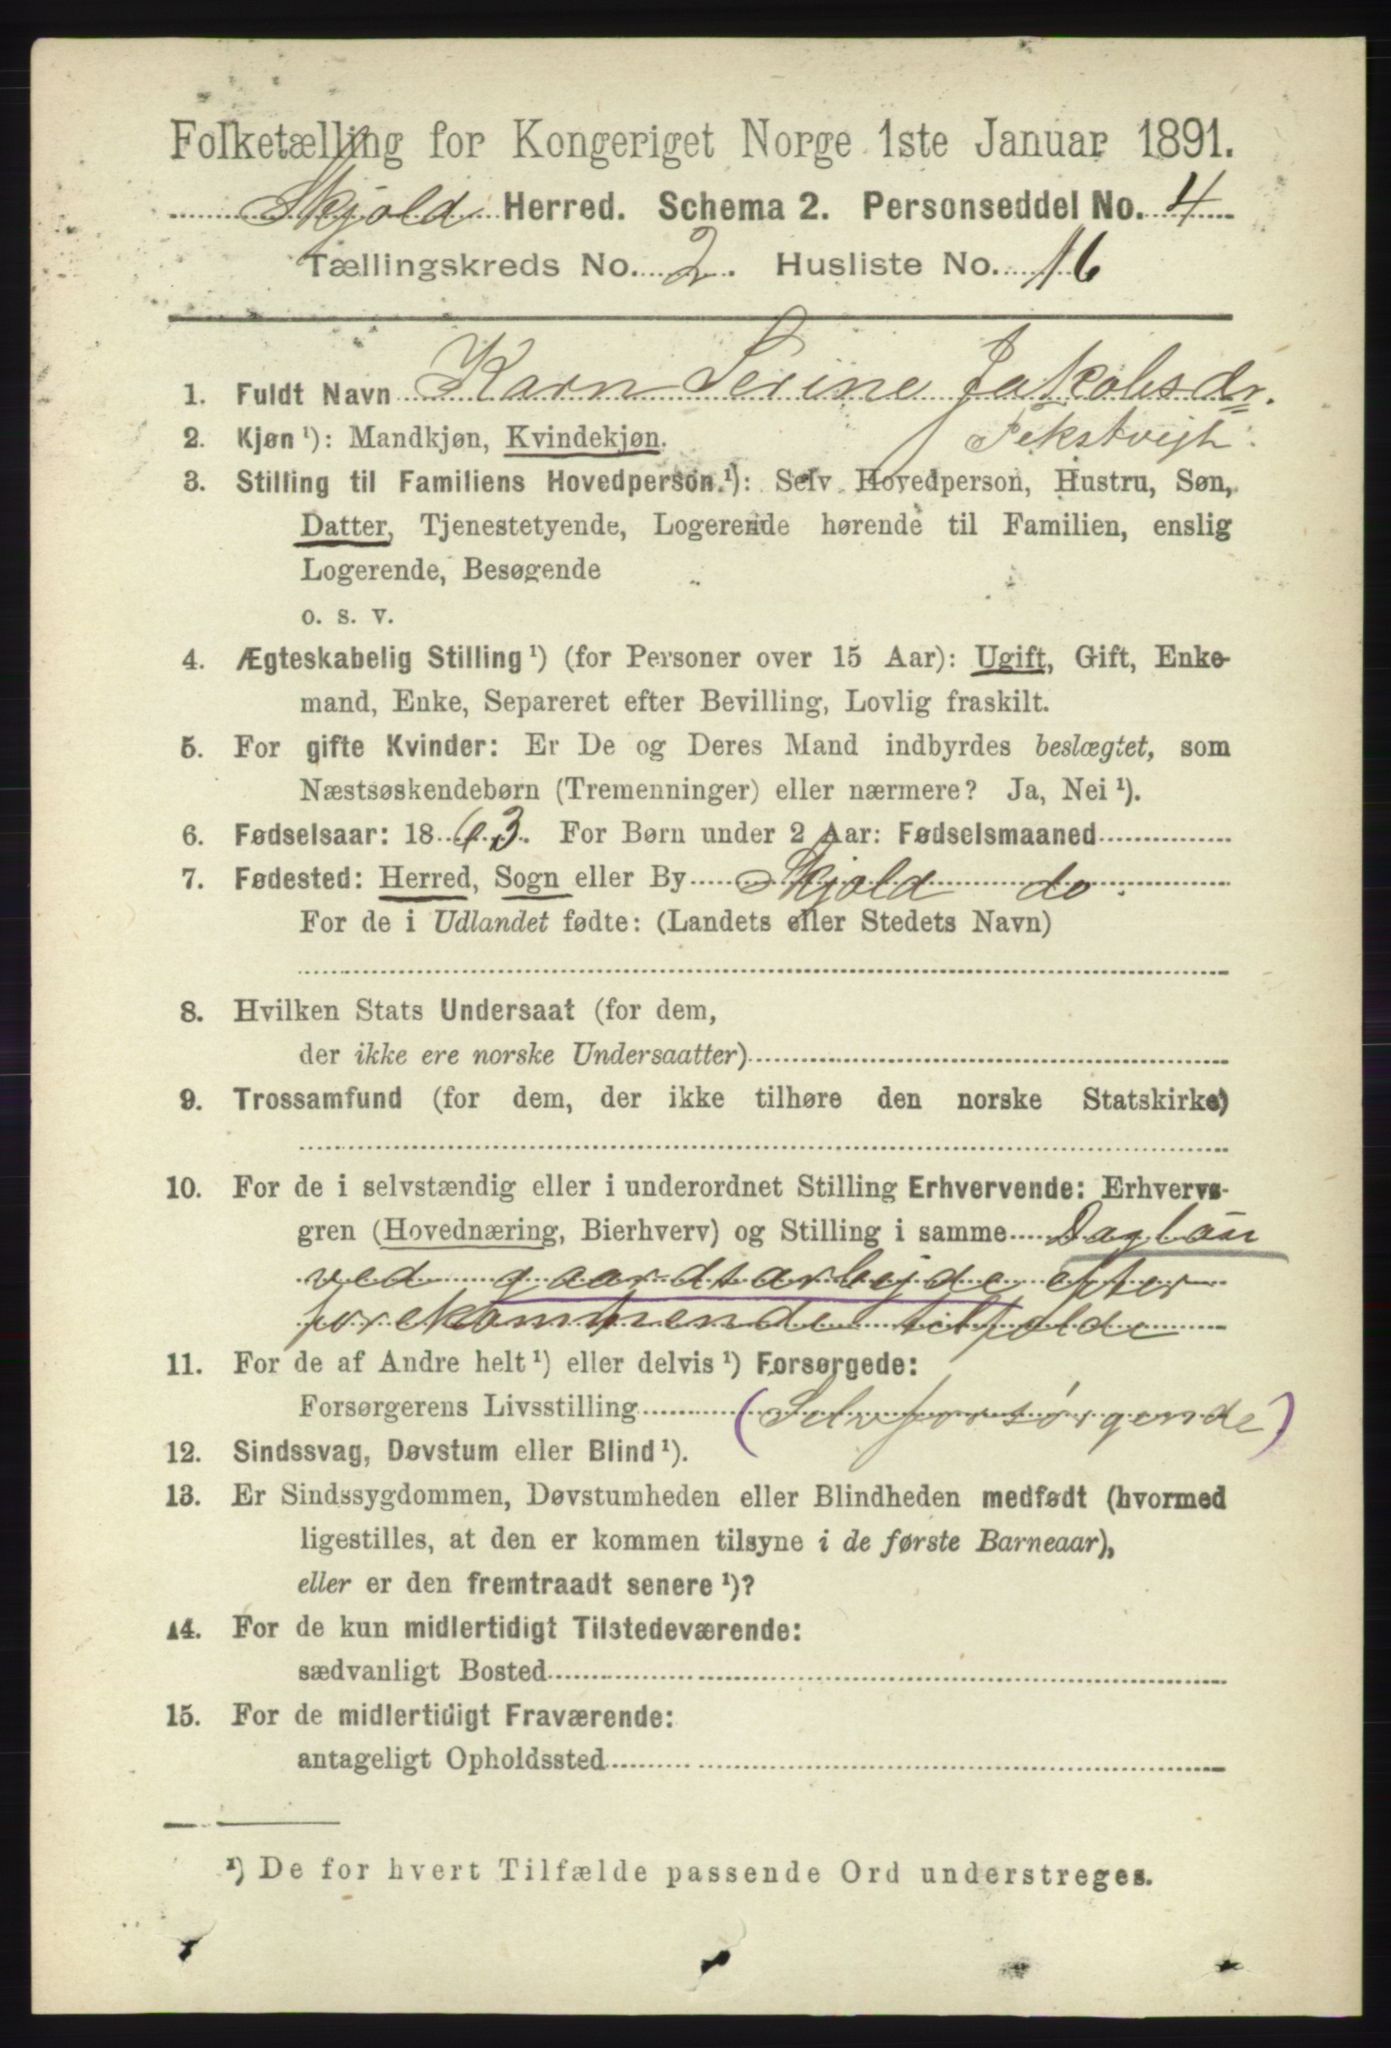 Folketælling for Kongeriget Norge 1ste Januar 1891.
Skjold Herred. Schema 2. Personseddel No. 4
Tællingskreds No. 2. Husliste No. 16
1. Fuldt Navn Karn Serine Jakobsdr.
2. Kjøn ¹): Mandkjøn, Kvindekjøn.
3. Stilling til Familiens Hovedperson ¹): Selv Hovedperson, Hustru, Søn,
Datter, Tjenestetyende, Logerende hørende til Familien, enslig
Logerende, Besøgende
o. s. v.
4. Ægteskabelig Stilling ¹) (for Personer over 15 Aar): Ugift, Gift, Enke-
mand, Enke, Separeret efter Bevilling, Lovlig fraskilt.
5. For gifte Kvinder: Er De og Deres Mand indbyrdes beslægtet, som
Næstsøskendebørn (Tremenninger) eller nærmere? Ja, Nei ¹).
6. Fødselsaar: 1863. For Børn under 2 Aar: Fødselsmaaned
7. Fødested: Herred, Sogn eller By Skjold do.
For de i Udlandet fødte: (Landets eller Stedets Navn)
8. Hvilken Stats Undersaat (for dem,
der ikke ere norske Undersaatter)
9. Trossamfund (for dem, der ikke tilhøre den norske Statskirke)
10. For de i selvstændig eller i underordnet Stilling Erhvervende: Erhvervs-
gren (Hovednæring, Bierhverv) og Stilling i samme Dagløn
ved gaardtarbejde efter
forekommende tilfølde
11. For de af Andre helt ¹) eller delvis ¹) Forsørgede:
Forsørgerens Livsstilling (Selvforsørgende)
12. Sindssvag, Døvstum eller Blind ¹).
13. Er Sindssygdommen, Døvstumheden eller Blindheden medfødt (hvormed
ligestilles, at den er kommen tilsyne i de første Barneaar),
eller er den fremtraadt senere ¹)?
14. For de kun midlertidigt Tilstedeværende:
sædvanligt Bosted
15. For de midlertidigt Fraværende:
antageligt Opholdssted
¹) De for hvert Tilfælde passende Ord understreges.